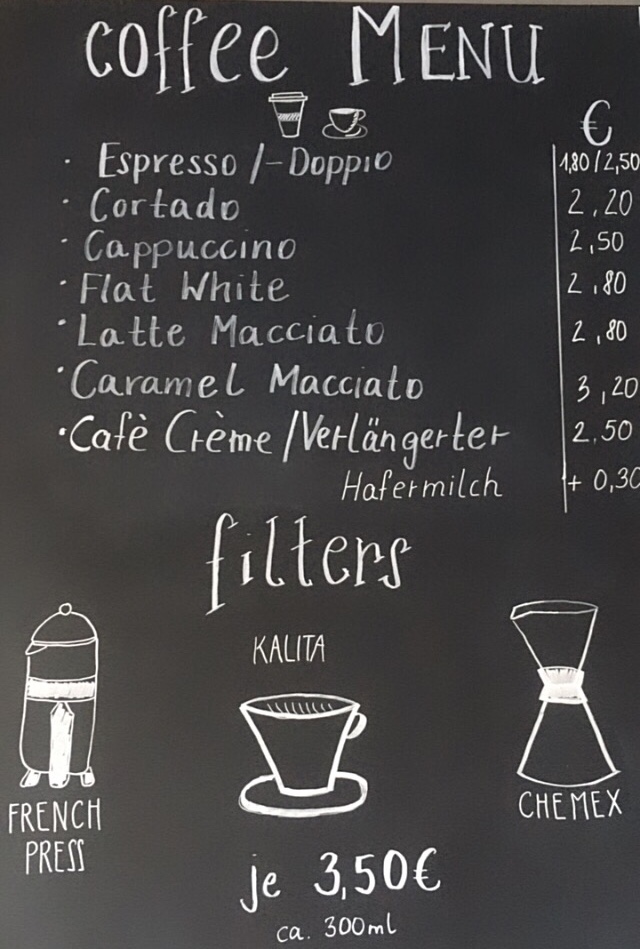 coffee MENU
€
· Espresso /-Doppio 1,80/2,50
· Cortado 2,20
· Cappuccino 2,50
· Flat White 2,80
· Latte Macciato 2,80
· Caramel Macciato 3,20
· Cafè Crème /Verlängerter 2.50
Hafermilch + 0,30
filters
KALITA
FRENCH PRESS
CHEMEX
je 3,50€
ca. 300ml